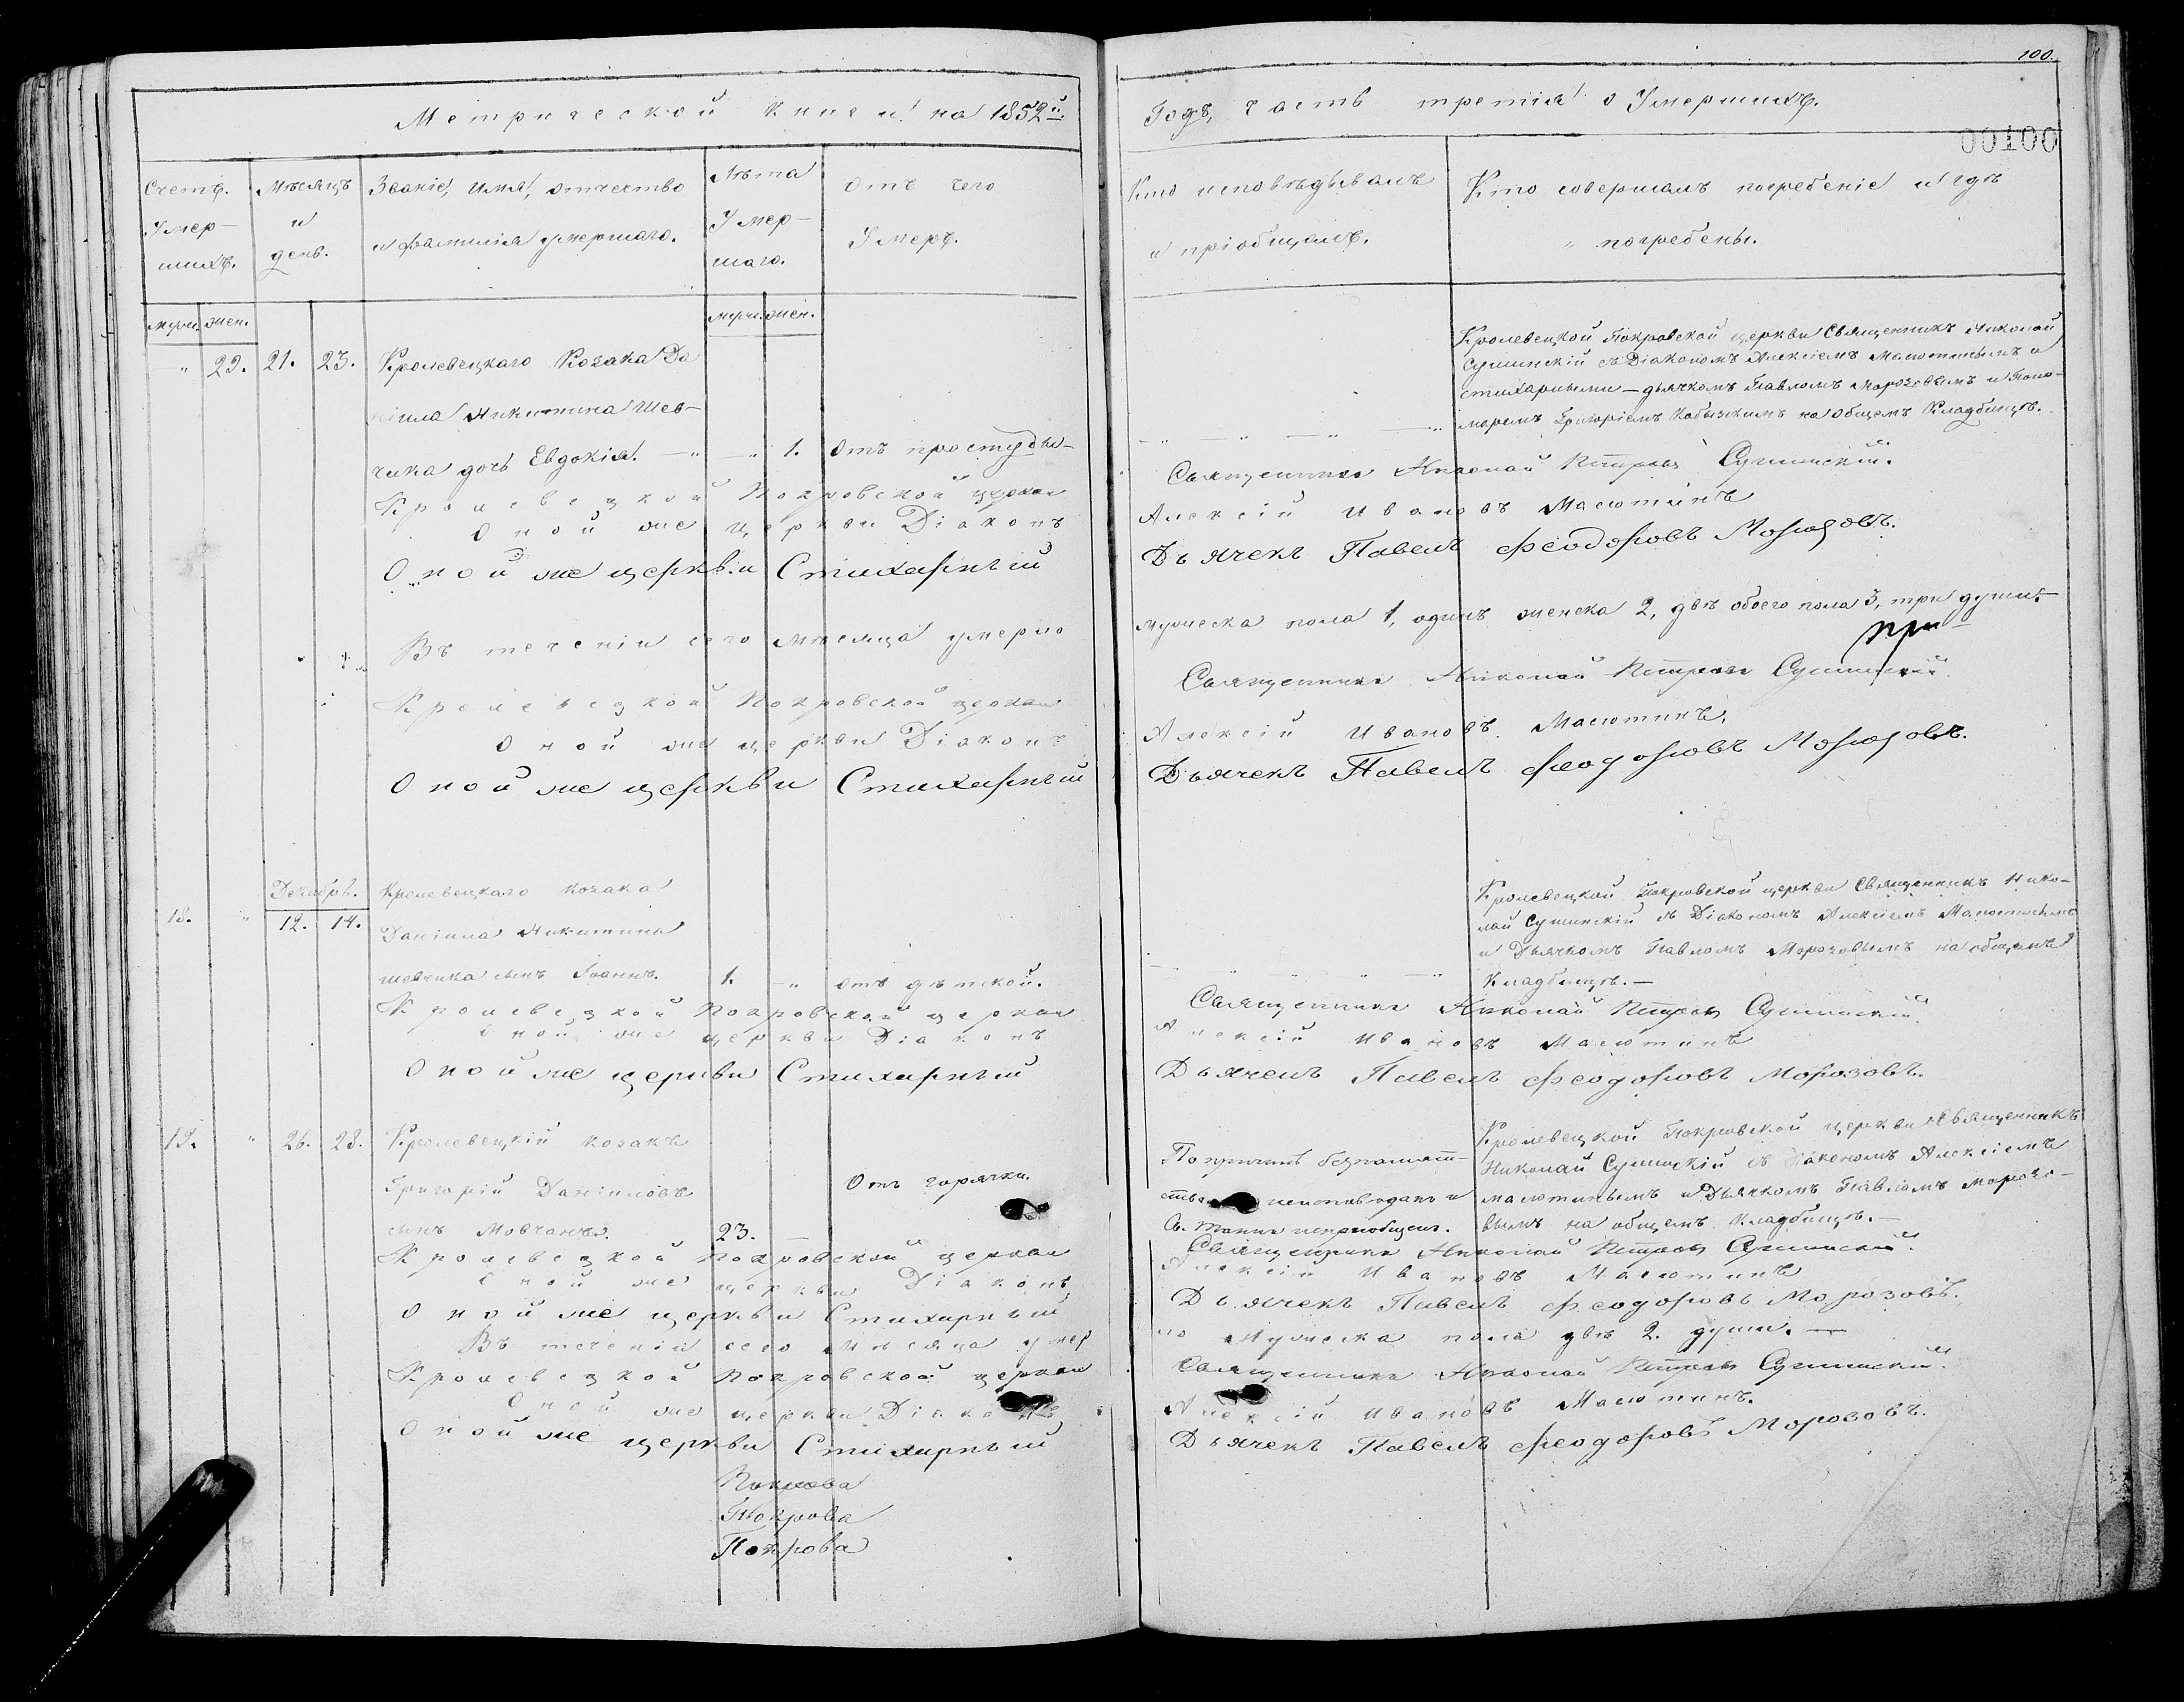 Метрической книги на 1852й
Счетъ. Умер-шихъ.
Мѣсяцъ и день.
Званіе, имя, отчество и фамилія умершаго.
Лѣта Умер-шаго.
Отъ чего Умеръ.
муж. жен.
муж. жен.
" 29. 21. 23. Кролевецкаго Козака Да
ніила Никитина Шев-
чика дочь Евдокія. — " — " 1. Отъ простуды—
Кролевецкой Покровской церкви
Оной же церкви Діаконъ
Оной же церкви Стихарный
Въ теченіи сего мѣсяца умерло
Кролевецкой Покровской церкви
Оной же церкви Діаконъ
Оной же церкви Стихарный
Декабрь. Кролевецкаго козака
18. " 12. 14. Даніила Никитина
шевчика сынъ Іоаннъ. 1. — " отъ дѣтской.
Кролевецкой Покровской церкви
Оной же церкви Діаконъ
Оной же церкви Стихарный
19. " 26. 28. Кролевецкій козакъ
Григорій Даніиловъ Отъ горячки.
сынъ Мовчанъ. 23. —
Кролевецкой Покровской церкви
Оной же церкви Діаконъ
Оной же церкви Стихарный
Въ теченіи сего мѣсяца умер
Кролевецкой Покровской церкви
Оной же церкви Діаконъ
Оной же церкви Стихарный
Покрова
Покрова
Покрова
100.
Годъ, часть третія о Умершихъ.
00100
Кто исповѣдывалъ и пріобщалъ.
Кто совершалъ погребеніе и гдѣ погребены.
Кролевецкой Покровской церкви Священникъ Николай
Сушинскій съ Діакономъ Алексіемъ Масютинымъ и
стихарными — дьячкомъ Павломъ Морозовымъ и Поно-
маремъ Григоріемъ на общемъ Кладбищѣ.
Священникъ Николай Петровъ Сушинскій.
Алексій Ивановъ Масютинъ
Дьячекъ Павелъ Феодоровъ Морозовъ.
мужеска пола 1, одинъ женска 2, двѣ обоего пола 3, три души.—
Священникъ Николай Петровъ Сушинскій.
Алексій Ивановъ Масютинъ.
Дьячекъ Павелъ Феодоровъ Морозовъ.
Кролевецкой Покровской церкви Священникъ Нико-
лай Сушинскій съ Діакономъ Алексіемъ Масютинымъ
и Дьячкомъ Павломъ Морозовымъ на общемъ
Кладбищѣ.—
Священникъ Николай Петровъ Сушинскій.
Алексій Ивановъ Масютинъ
Дьячекъ Павелъ Феодоровъ Морозовъ.
Кролевецкой Покровской церкви Священникъ
По причинѣ безпамят- Николай Сушинскій съ Діакономъ Алексіемъ
ства неисповѣданъ и Масютинымъ и Дьячкомъ Павломъ Морозо-
Св. Таинъ непріобщенъ. вымъ на общемъ Кладбищѣ.—
Священникъ Николай Петровъ Сушинскій.
Алексій Ивановъ Масютинъ
Дьячекъ Павелъ Феодоровъ Морозовъ.
ло мужеска пола двѣ 2. души. —
Священникъ Николай Петровъ Сушинскій.
Алексій Ивановъ Масютинъ.
Дьячекъ Павелъ Феодоровъ Морозовъ.